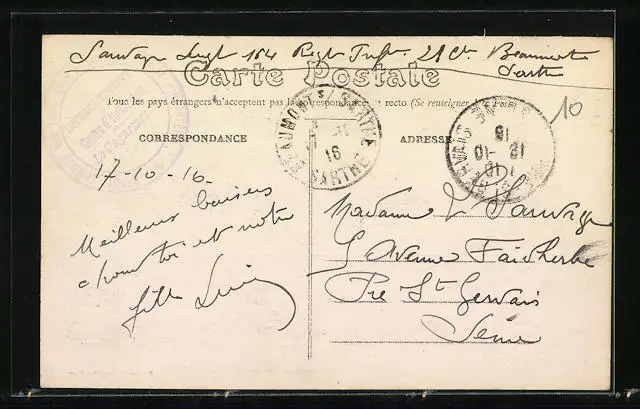 Sauvage 164 Regt Inft 28 Cie Beaumont s/
Sarthe
Carte Postale
Tous les pays étrangers n'acceptent pas la correspondance au recto (Se renseigner à la Poste)
10
CORRESPONDANCE
ADRESSE
BEAUMONT S/ SARTHE
16
SARTHE
18
18 -10
17-10-16.
Meilleurs baisers
pour toi et notre
fille
Madame L Sauvage
5 Avenue Faidherbe
Pré St Gervais
Seine